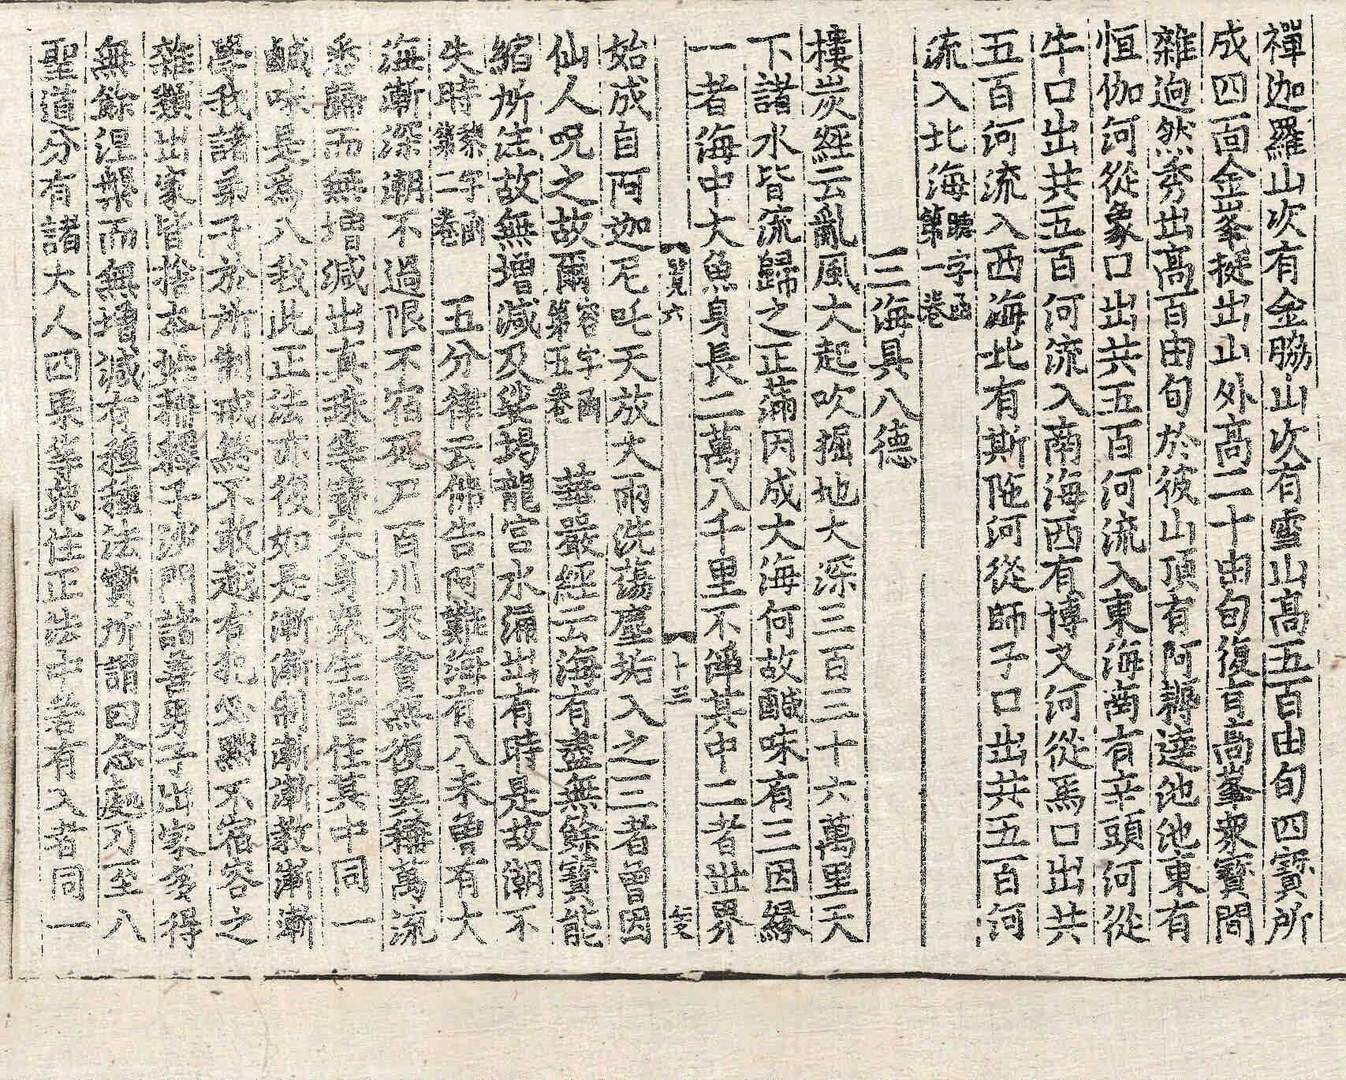 禪迦羅山次有金脇山次有雪山高五百由旬四寶所
成四面金峯挺出山外高二十由旬復有高峯衆寶間
雜逈然秀出高百由旬於彼山頂有阿耨達池池東有
恒伽河從象口出共五百河流入東海南有辛頭河從
牛口出共五百河流入南海西有博叉河從馬口出共
五百河流入西海北有斯陁河從師子口出共五百河
流入北海聽字函第一卷
三海具八德
樓炭經云亂風大起吹掘地大深三百三十六萬里天
下諸水皆流歸之正滿因成大海何故鹹味有三因緣
一者海中大魚身長二萬八千里不淨其中二者世界
覽六 十三
始成自阿迦尼吒天放大雨洗蕩塵垢入之三者曾因
仙人呪之故爾容字函第五卷 華嚴經云海有盡無餘寶能
縮所注故無增減及娑竭龍宮水涌出有時是故潮不
失時黎字函第二卷 五分律云佛告阿難海有八未曾有大
海漸深潮不過限不宿死尸百川來會無復異稱萬流
悉歸而無增減出真珠等寶大身衆生皆住其中同一
鹹味是爲八我此正法亦復如是漸漸制漸漸教漸漸
學我諸弟子於所制戒終不敢越有犯必黜不宿容之
雜類出家皆捨本姓稱釋子沙門諸善男子出家多得
無餘涅槃而無增減有種種法寶所謂四念處乃至八
聖道分有諸大人四果等衆住正法中若有入者同一